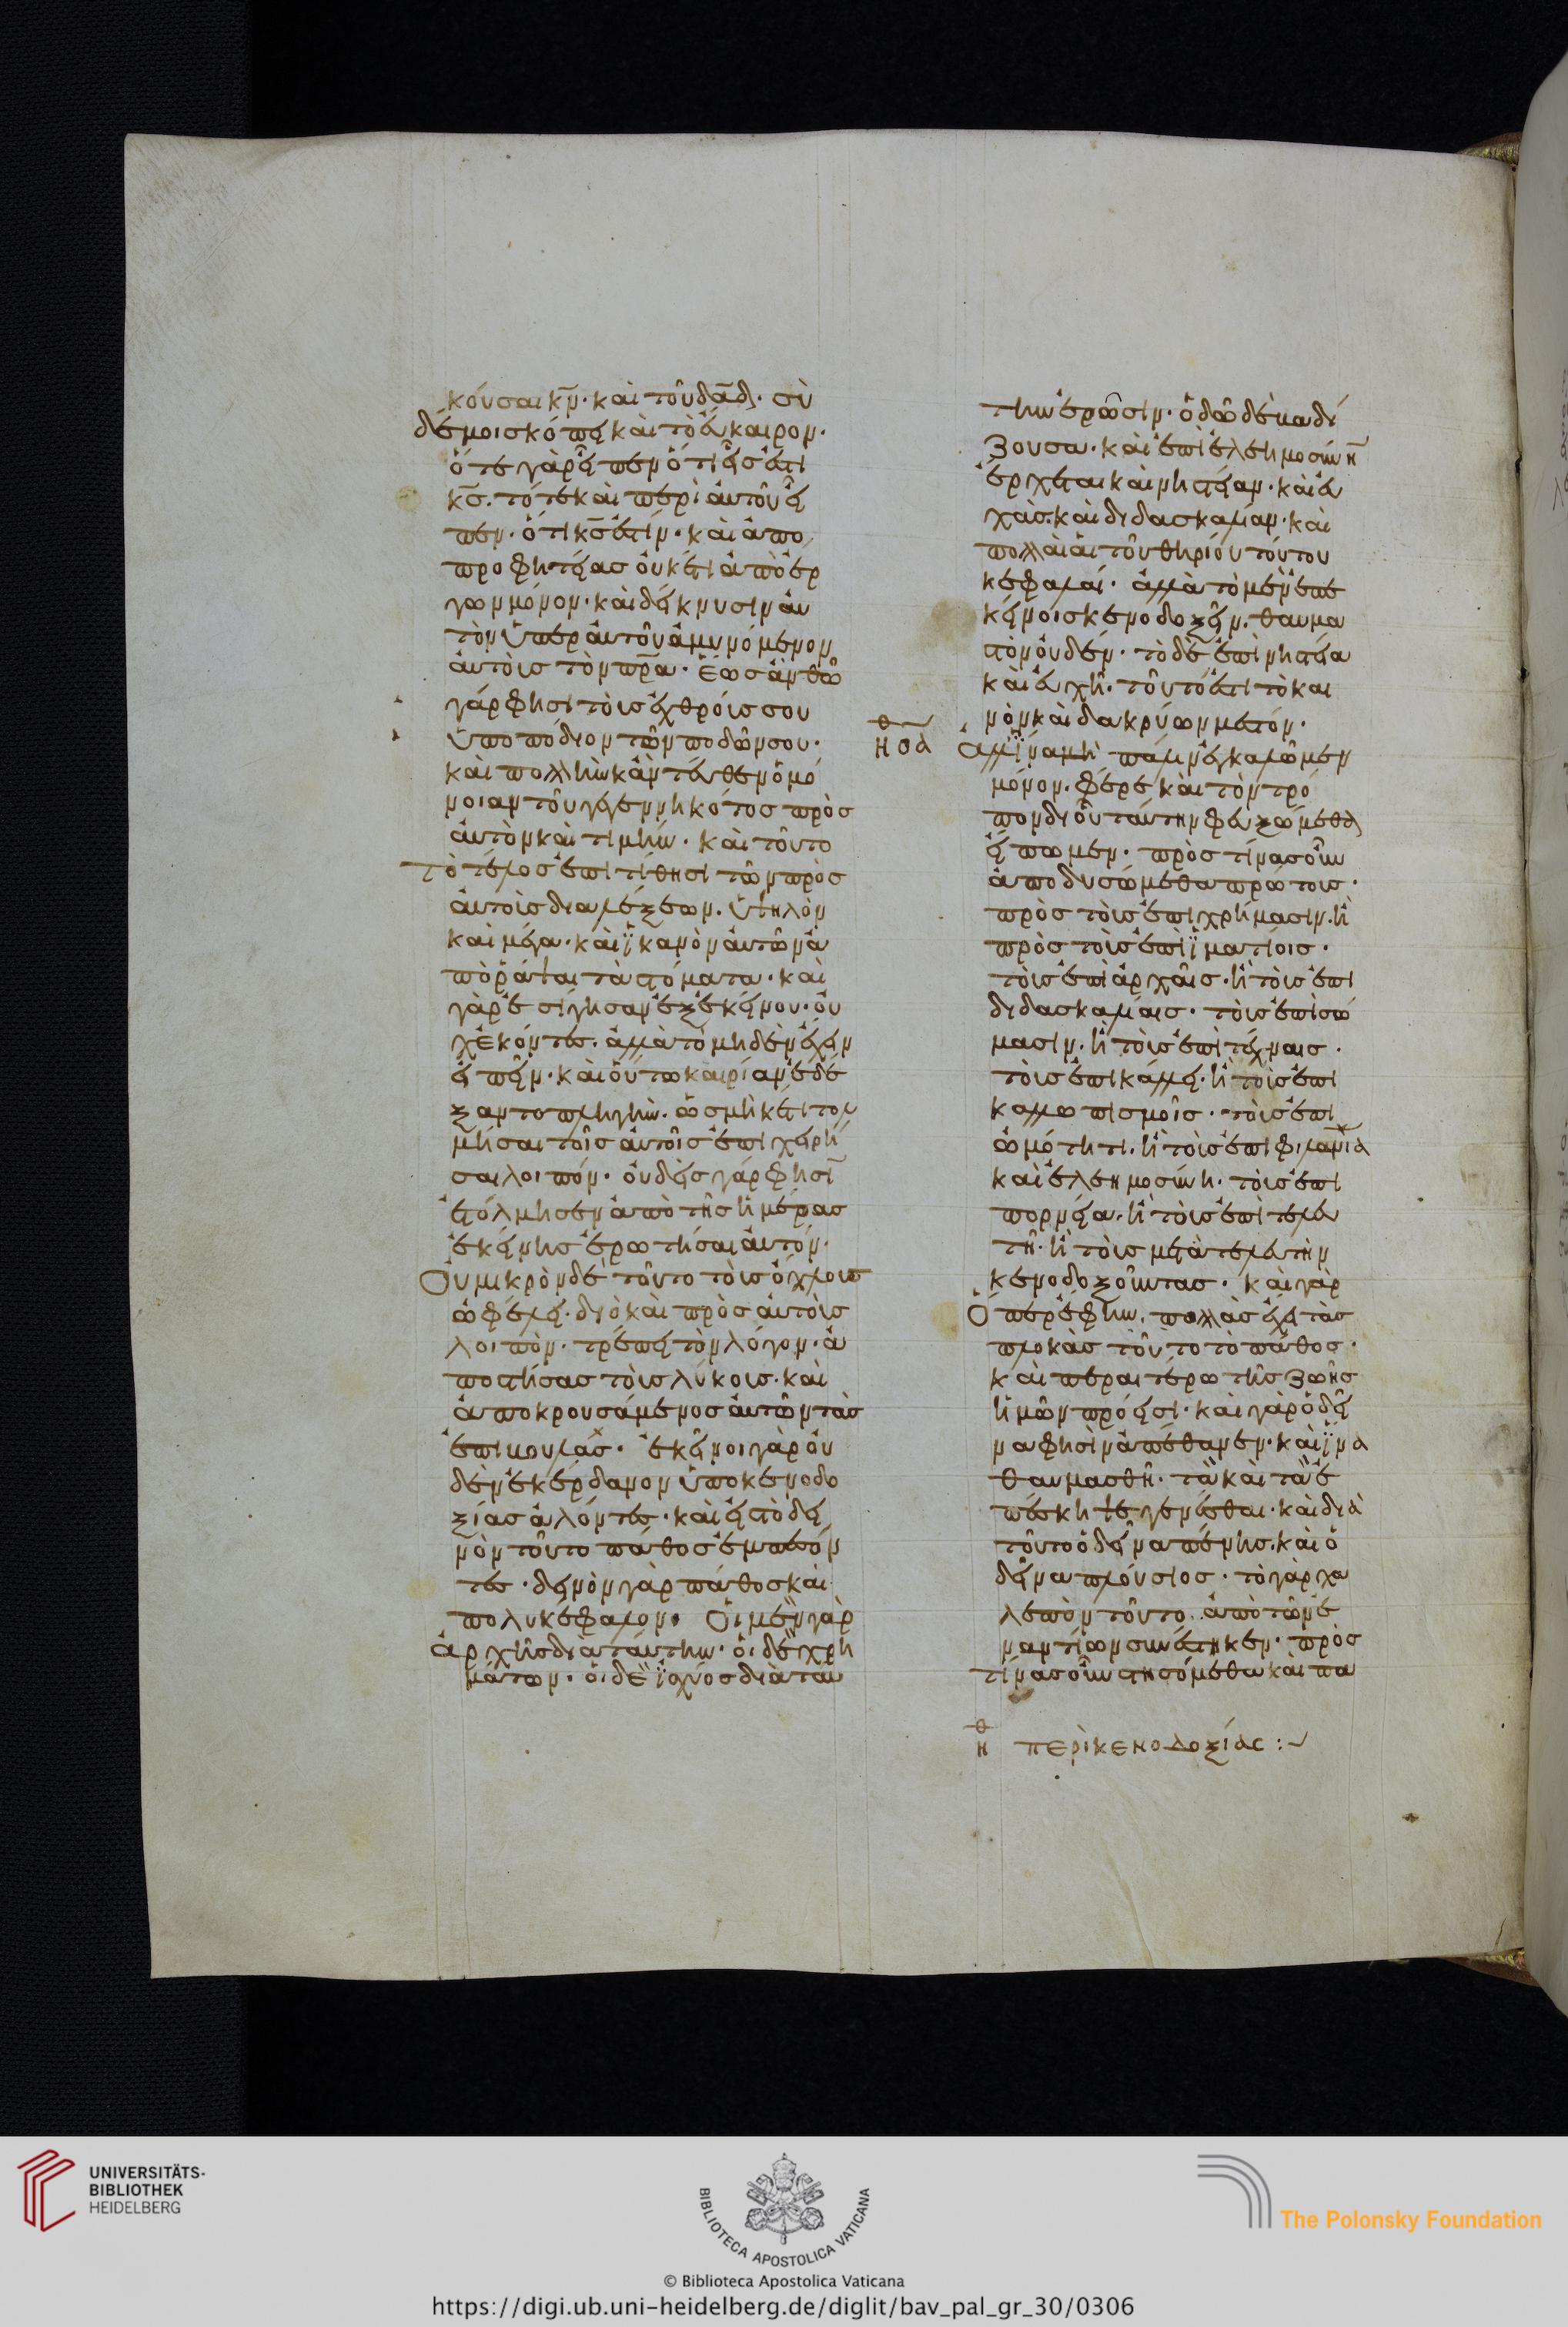 κούσαι κν̅· καὶ τοῦ δα̅δ. σὺ
δέ μοι σκόπει καὶ τὸ εὔκαιρον.
ὅτε γὰρ εἶπεν ὅτι εἷς ἐστι
κ̅ς. τότε καὶ περὶ αὐτοῦ εἶ
πεν. ὅτι κ̅ς ἐστίν. καὶ ἀπο
προφητείας οὐκέτι ἀπὸ ἔρ
γων μόνον. καὶ δείκνυσιν αὐ
τὸν ὑπὲρ αὐτοῦ ἀμυνόμενον
αὐτοῖς τὸν πρ̅α. ἕως ἂν θῶ
γάρ φησι τοὺς ἐχθρούς σου
ὑποπόδιον τῶν ποδῶν σου.
καὶ πολλὴν κἀντεῦθεν ὁμό
νοιαν τοῦ γεγεννηκότος πρὸς
αὐτὸν καὶ τιμήν. καὶ τοῦτο
τὸ τέλος ἐπιτίθησι τῶν πρὸς
αὐτοὺς διαλέξεων. ὑψηλὸν
καὶ μέγα. καὶ ἱκανὸν αὐτῶν ἀ
πορράψαι τὰ στόματα. καὶ
γὰρ ἐσίγησαν ἐξ ἐκείνου. οὐ
χ ἑκόντες. ἀλλὰ τὸ μηδὲν ἔχειν
εἰπεῖν. καὶ οὕτω καιρίαν ἐδέ
ξαντο πληγήν. ὡς μηκέτι τολ
μῆσαι τοῖς αὐτοῖς ἐπιχειρῆ
σαι λοιπόν. οὐδεὶς γάρ φησῑ
ἐτόλμησεν ἀπὸ τῆς ἡμέρας
ἐκείνης ἐρωτῆσαι αὐτόν.
Οὐ μικρὸν δὲ τοῦτο τοὺς ὄχλους
ὠφέλει. διὸ καὶ πρὸς αὐτοὺς
λοιπὸν. τρέπει τὸν λόγον. ἀ
ποστήσας τοὺς λύκους. καὶ
ἀποκρουσάμενος αὐτῶν τὰς
ἐπιβουλάς. ἐκεῖνοι γὰρ οὐ
δὲν ἐκέρδανον ὑπὸ κενοδο
ξίας ἁλόντες. καὶ εἰς τὸ δει
νὸν τοῦτο πάθος ἐμπεσόν
τες. δεινὸν γὰρ πάθος καὶ
πολυκέφαλον. Οἱ μὲν γὰρ
ἀρχῆς διὰ ταύτην. οἱ δὲ χρη
μάτων. οἱ δὲ ἰσχύος διὰ ταύ
την ἐρῶσιν. ὁδῷ δὲ βαδί
ζουσα. καὶ ἐπὶ ἐλεημοσύνη̅
ἔρχεται καὶ νηστείαν. καὶ εὐ
χὰς. καὶ διδασκαλίαν. καὶ
πολλαὶ αἱ τοῦ θηρίου τούτου
κεφαλαί. ἀλλὰ τὸ μὲν ἐπ ἐ
κείνοις κενοδοξεῖν. θαυμα
στὸν οὐδέν. τὸ δὲ ἐπὶ νηστεία
καὶ εὐχῆ. τοῦτό ἐστι τὸ καὶ
νὸν καὶ δακρύων μεστόν.
ηθ οα Ἀλλ ἵνα μὴ πάλιν ἐγκαλῶμεν
μόνον. φέρε καὶ τὸν τρό
πον δι οὗ ταύτην φευξώμεθα
εἴπωμεν. πρὸς τίνας οὖν
ἀποδυσώμεθα πρώτους.
πρὸς τοὺς ἐπὶ χρήμασιν. ἢ
πρὸς τοὺς ἐπὶ ἱματίοις.
τοὺς ἐπὶ ἀρχαῖς. ἢ τοὺς ἐπὶ
διδασκαλίαις. τοὺς ἐπὶ σώ
μασιν. ἢ τοὺς ἐπὶ τέχναις.
τοὺς ἐπὶ κάλλει. ἢ τοὺς ἐπὶ
καλλωπισμοῖς. τοὺς ἐπὶ
ὠμότητι. ἢ τοὺς ἐπὶ φιλανι̅α
καὶ ἐλεημοσύνη. τοὺς ἐπὶ
πορνεία. ἢ τοὺς ἐπὶ τελευ
τῆ. ἢ τοὺς μετὰ τελευτὴν
κενοδοξοῦντας. καὶ γὰρ
Ὅπερ ἔφην. πολλὰς ἔχει τὰς
πλοκὰς τοῦτο τὸ πάθος.
καὶ περαιτέρω τῆς ζωῆς
ἡμῶν πρόεισι. καὶ γὰρ ὁ δεῖ
να φησὶν ἀπέθανεν. καὶ ἵνα
θαυμασθῆ. τὰ καὶ τὰ ἐ
πέσκηψε γενέσθαι. καὶ διὰ
τοῦτο ὁ δεῖνα πένης. καὶ ὁ
δεῖνα πλούσιος. τὸ γὰρ χα
λεπὸν τοῦτο. ἀπὸ τῶν ἐ
ναντίων συνέστηκεν. πρὸς
τίνας οὖν στησόμεθα καὶ πα
ηθ περὶ κενοδοξίας :~
UNIVERSITÄTS-
BIBLIOTHEK
HEIDELBERG
BIBLIOTECA APOSTOLICA VATICANA
The Polonsky Foundation
© Biblioteca Apostolica Vaticana
https://digi.ub.uni-heidelberg.de/diglit/bav_pal_gr_30/0306